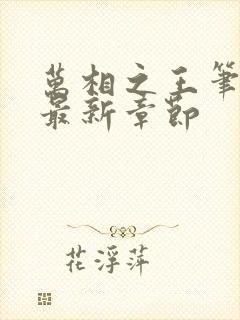 萬相之王筆
最新章節
花浮萍